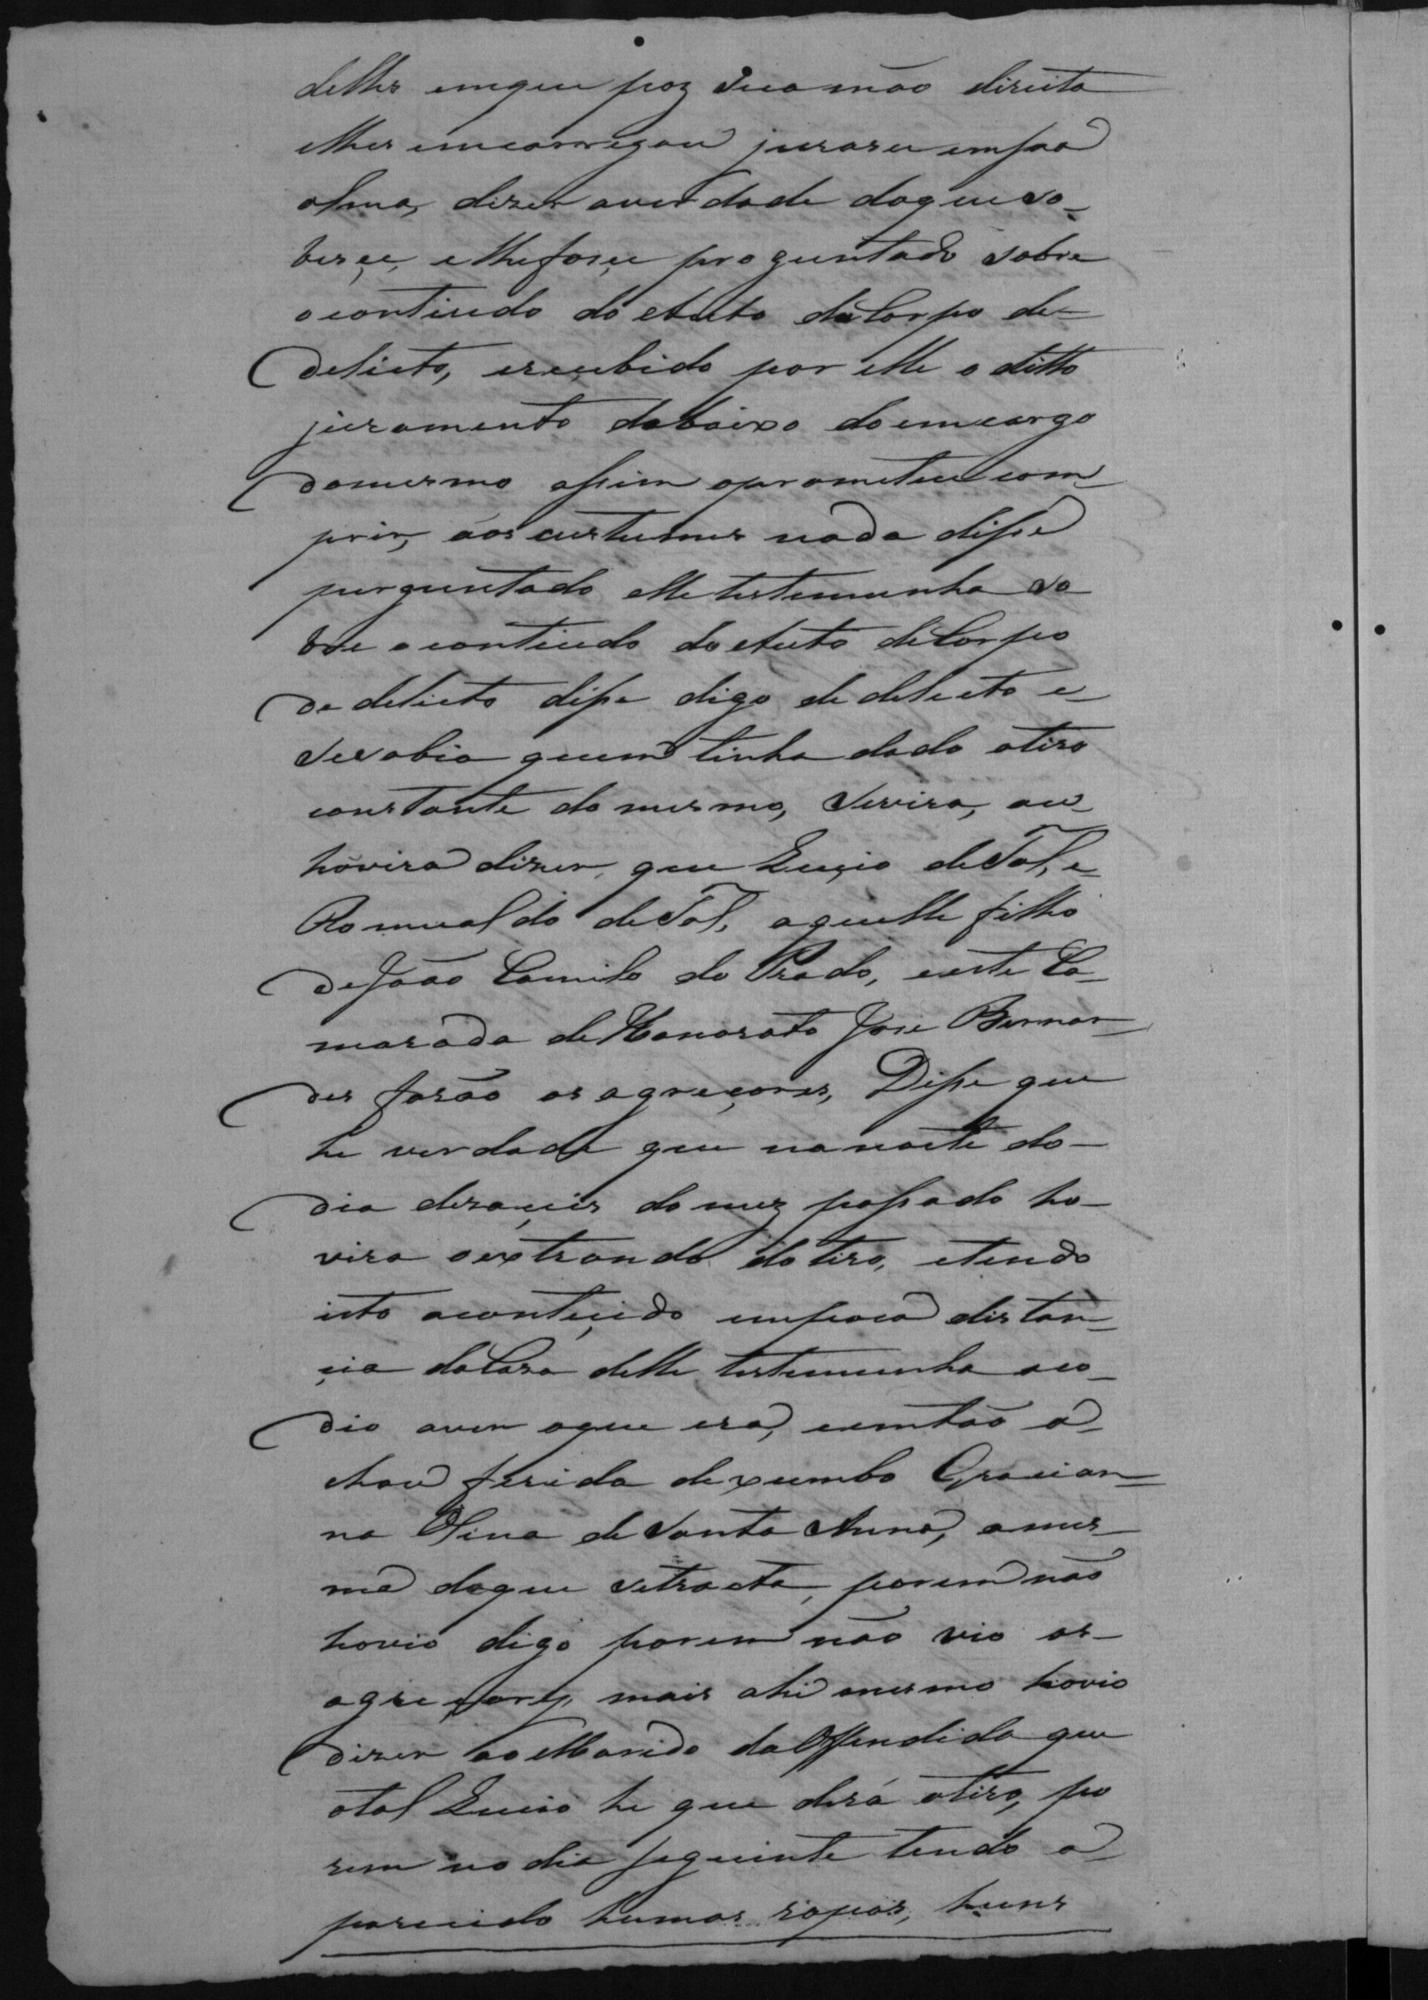 delles emque poz sua mão direita
elhes emcarregou jurasse em sua
alma, dizer averdade doque so-
berçe, elhe forçe proguntado sobre
o contiudo do Auto de Corpo de-
Delicto, erecebido por elle o ditto
juramento debaixo do emcargo
domesmo assim oprometeu com
prir, aos custumes nada disse
perguntado elle testemunha so
bre o contiudo do Auto de Corpo
de delicto disse digo de delicto e
sesabia quem tinha dado otiro
constante do mesmo, sevira, ou
hovira dizer, que Luçio de Tal, e
Romualdo de Tal, aquelle filho
de João Camilo do Prado, eeste Ca-
marada de Honorato Jose Bernar-
des forão os agreçores, Disse que
he verdade que na noite do-
dia dezaçeis do mez passado ho-
vira o extrondo do tiro, etendo
isto aconteçido em poca distan-
çia da Casa delle testemunha aco-
dio aver oque era, eemtão a-
chou ferida de xumbo Gracian-
na Olina de Santa Anna, a mes-
ma deque setracta, porem não
hovio digo porem não vio os-
agreçores, mais ahi mesmo hovio
dizer ao Marido da Offendida que
otal Luçio he que derá otiro, po
rem no dia seguinte tendo a-
parecido humas ropas, huns